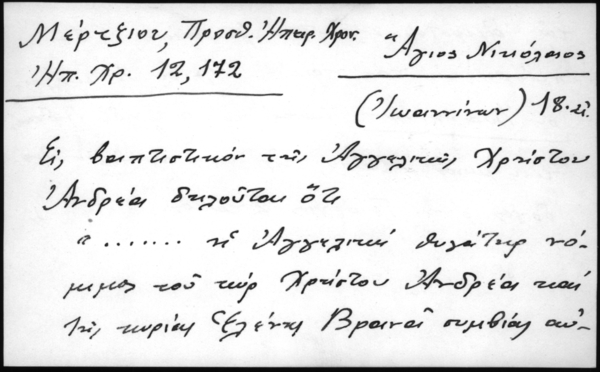 Μέρτζιου, Προσθ. Ἠπειρ. Χρον.
Ἠπ. Χρ. 12, 172
Ἅγιος Νικόλαος
(Ἰωαννίνων) 18. αἰ.
Εἰς βαπτιστικόν τῆς Ἀγγελικῆς Χρήστου
Ἀνδρέα δηλοῦται ὅτι
"....... ἡ Ἀγγελική θυγάτηρ νό-
μιμος τοῦ κύρ Χρήστου Ἀνδρέα καί
τῆς κυρίας Ἑλένης Βρανᾶ συμβίας αὐ-